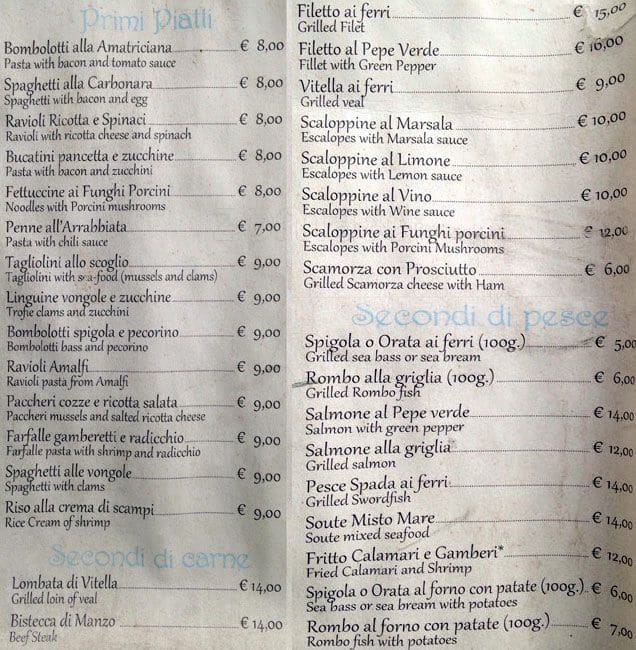 Primi Piatti
Bombolotti alla Amatriciana € 8,00
Pasta with bacon and tomato sauce
Spaghetti alla Carbonara € 8,00
Spaghetti with bacon and egg
Ravioli Ricotta e Spinaci € 8,00
Ravioli with ricotta cheese and spinach
Bucatini pancetta e zucchine € 8,00
Pasta with bacon and zucchini
Fettuccine ai Funghi Porcini € 8,00
Noodles with Porcini mushrooms
Penne all'Arrabbiata € 7,00
Pasta with chili sauce
Tagliolini allo scoglio € 9,00
Tagliolini with sea-food (mussels and clams)
Linguine vongole e zucchine € 9,00
Trofie clams and zucchini
Bombolotti spigola e pecorino € 9,00
Bombolotti bass and pecorino
Ravioli Amalfi € 9,00
Ravioli pasta from Amalfi
Paccheri cozze e ricotta salata € 9,00
Paccheri mussels and salted ricotta cheese
Farfalle gamberetti e radicchio € 9,00
Farfalle pasta with shrimp and radicchio
Spaghetti alle vongole € 9,00
Spaghetti with clams
Riso alla crema di scampi € 9,00
Rice Cream of shrimp
Secondi di carne
Lombata di Vitella € 14,00
Grilled loin of veal
Bistecca di Manzo € 14,00
Beef Steak
Filetto ai ferri € 15,00
Grilled Filet
Filetto al Pepe Verde € 16,00
Fillet with Green Pepper
Vitella ai ferri € 9,00
Grilled veal
Scaloppine al Marsala € 10,00
Escalopes with Marsala sauce
Scaloppine al Limone € 10,00
Escalopes with Lemon sauce
Scaloppine al Vino € 10,00
Escalopes with Wine sauce
Scaloppine ai Funghi porcini € 12,00
Escalopes with Porcini Mushrooms
Scamorza con Prosciutto € 6,00
Grilled Scamorza cheese with Ham
Secondi di pesce
Spigola o Orata ai ferri (100g.) € 5,00
Grilled sea bass or sea bream
Rombo alla griglia (100g.) € 6,00
Grilled Rombo fish
Salmone al Pepe verde € 14,00
Salmon with green pepper
Salmone alla griglia € 12,00
Grilled salmon
Pesce Spada ai ferri € 14,00
Grilled Swordfish
Soute Misto Mare € 14,00
Soute mixed seafood
Fritto Calamari e Gamberi* € 12,00
Fried Calamari and Shrimp
Spigola o Orata al forno con patate (100g.) € 6,00
Sea bass or sea bream with potatoes
Rombo al forno con patate (100g.) € 7,00
Rombo fish with potatoes